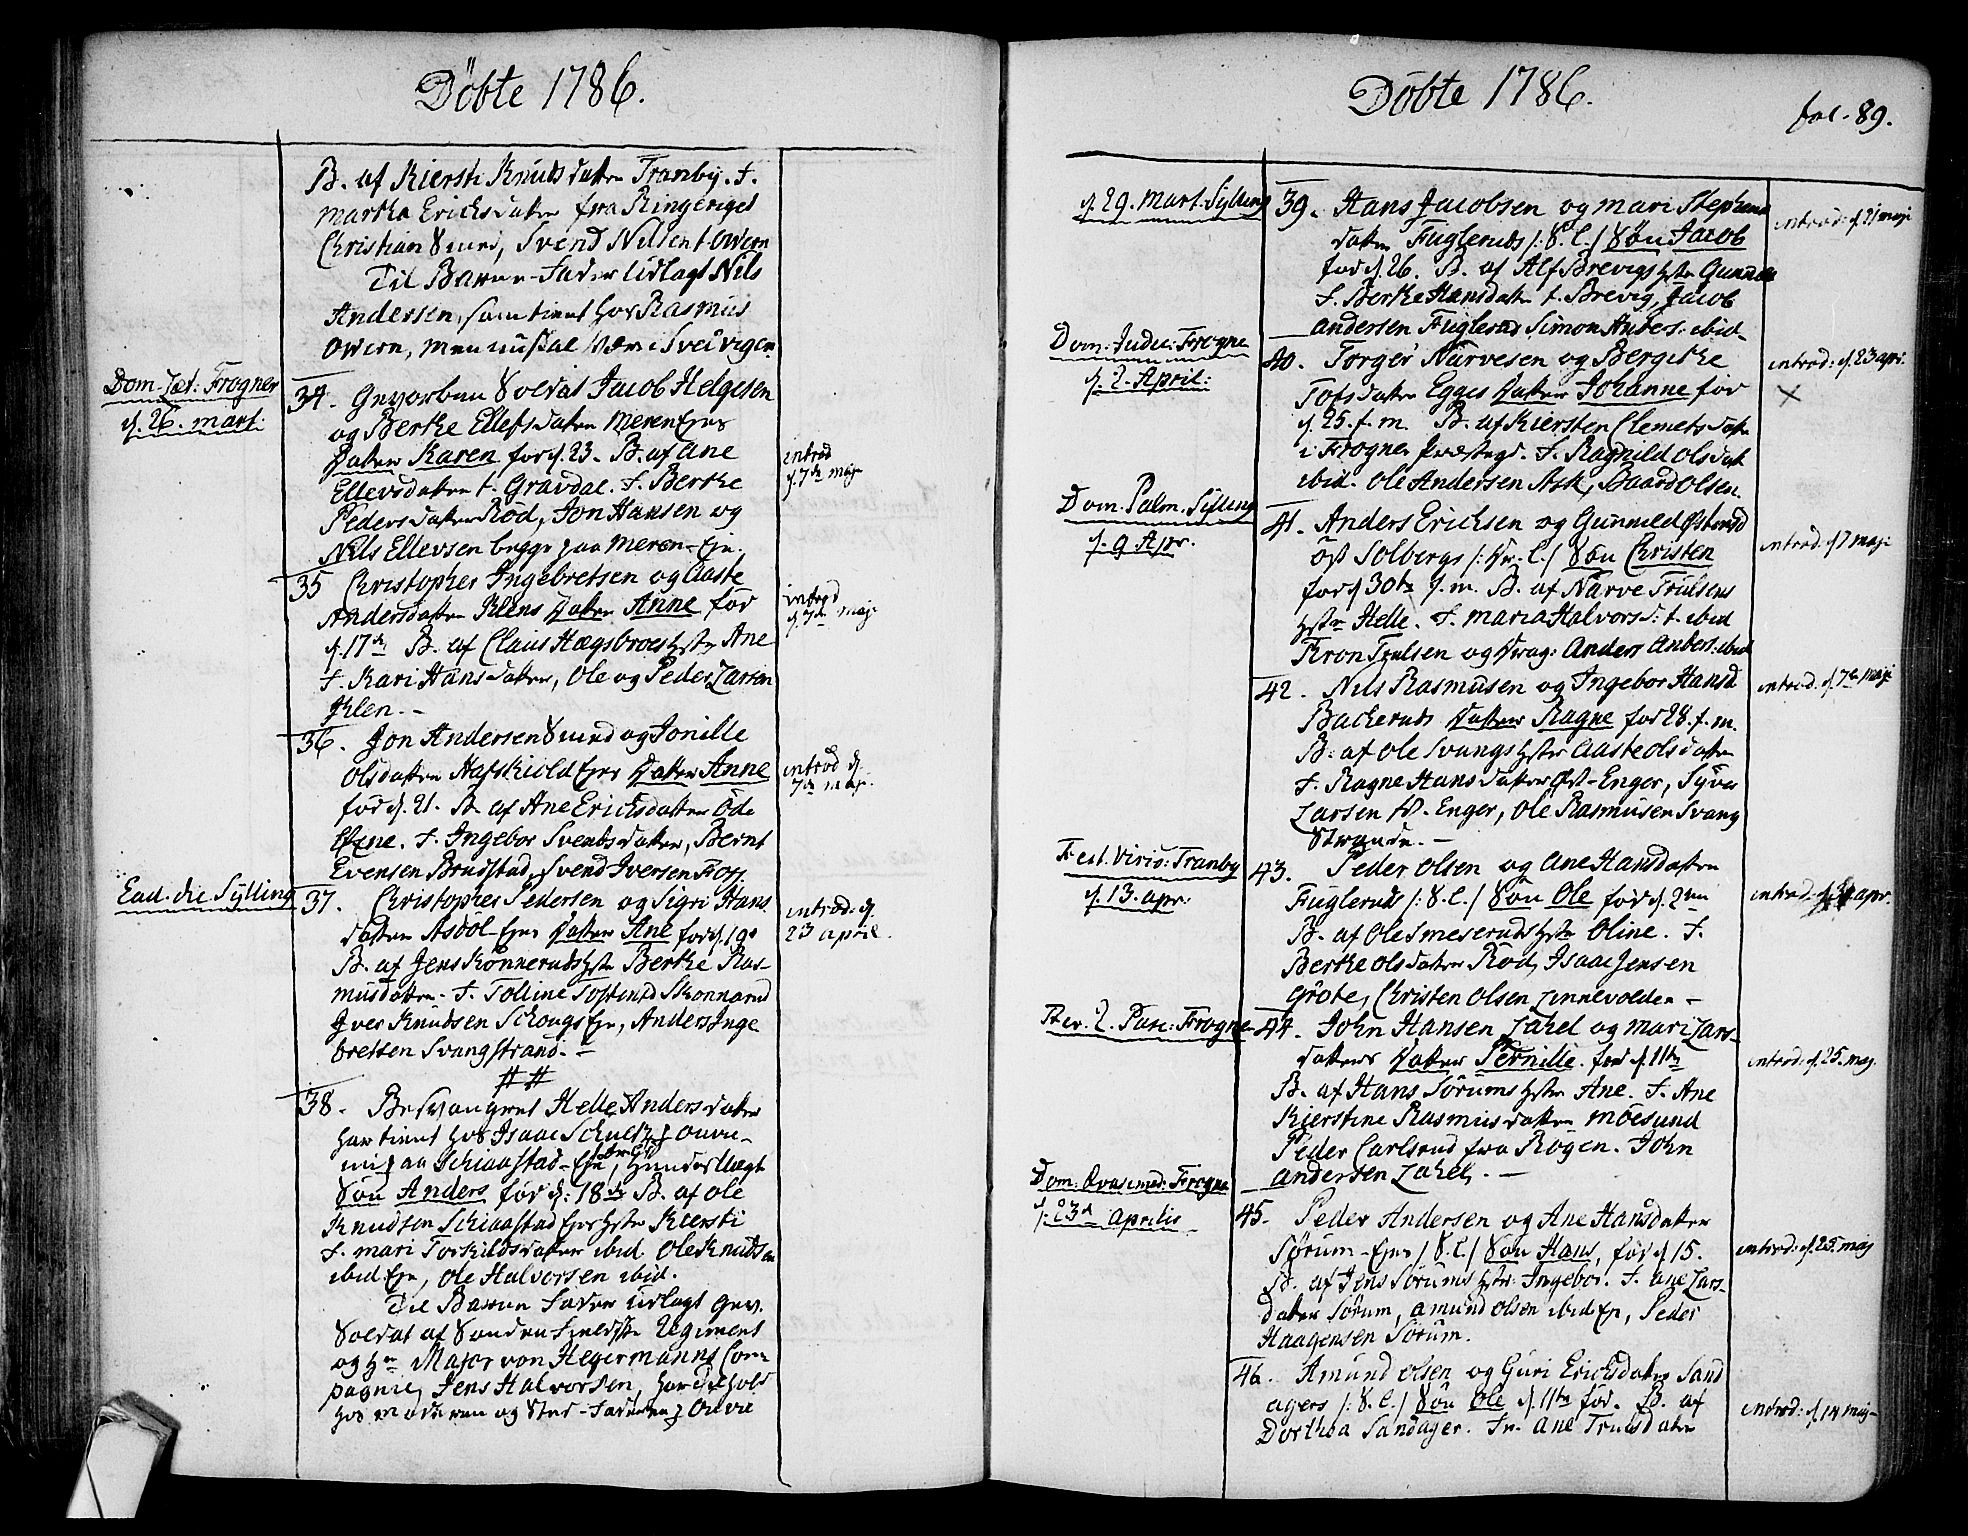 Döbte 1786.
B. af Kiersti Knudsdatter Tranby. F.
Martha Ericksdatter fra Ringeriget
Christian Smed, Svend Nilsen t. Owern
Til Barne-Fader udlagt Nils
Andersen, som tient hos Rasmus
Owern, men nu skal være i Svelvigen
Dom. Læt: Frogner
d. 26. mart:
34. Gevorben Soldat Jacob Helgesen
og Berthe Ellefsdatter Meren Ejes
Datter Karen fød d. 23. B. af Ane
Ellevsdatter t. Gravdal. F. Berthe
Pedersdatter Röd, Jon Hansen og
Nils Ellevsen begge paa Meren-Eje.
introd
d. 7de maj
35 Christopher Ingebretsen og Aaste
Andersdatter Klens Datter Anne fød
d. 17de B. af Claus Hægsbroes hstr Ane
F. Kari Hansdatter, Ole og Peder Larsen
Klen.-
introd
d. 7de maj
36. Jon Andersen Smed og Jonille
Olsdatter Hafskiold Ejes Datter Anne
fød d. 21. B. af Ane Ericksdatter Öde
F. Ingebor Svendsdatter, Bernt
Evensen Brudstad, Svend Iversen Foss.
introd d.
7de maj.
Ead. die Sylling
37. Christopher Pedersen og Sigri Hans
datter Asdöl-Ejes Datter Ane fød d. 19.
B. af Jens Kønneruds hstr Berthe Ras-
musdatter. F. Tolline Tostensd Skonnerud
Iver Knudsen Schougs Eje, Anders Inge
bretsen Svangstrand.-
introd: d.
23 april.
##
38. Besvangret Helle Andersdatter
har tient hos Isaac Schultz
paa Schiaastad-Eje, hendes Uægte
Søn Anders fød d: 18de B. af Ole
Knudsen Schiaastad Ejes hstr Kiersti
F. Mari Torkildsdatter ibid. Ole Knudsen
ibid Eje, Ole Halvorsen ibid.
Til Barne Fader udlagt Gev.
Soldat af Søndenfieldske Regiment
og Hr Major von Hegermanns Com-
pagnie, Jens Halvorsen,
hos Moderen og Sted-Faderen
Döbte 1786.
fol. 89.
d. 29. Mart. Sylling
39. Hans Jacobsen og Mari Stephens
datter Fugleruds /: S. C./ Søn Jacob
fød d. 26. B. af Alf Brevigs hstr Gunnild
F. Berthe Hansdatter t. Brevig, Jacob
Andersen Fuglerud Simon Anders: ibid.
introd: d. 21 maji
Dom: Judic: Frogne
d. 2. April:
40. Torger Narvesen og Bergithe
Tofsdatter Egges Datter Johanne fød
d. 25. f. m. B. af Kiersten Clemetsdatter
i Frogner Præstegd. F. Ragnild Olsdat
ibid. Ole Andersen Ask, Baard Olsen.
introd: d. 23 apr.
×
Dom. Palm. Sylling
d. 9 Apr.
41. Anders Ericksen og Gunnild Østensd
öst Solbergs /: Qv. C./ Søn Christen
fød d 30te f. m. B. af Narve Trulsens
hstr Helle. F. Maria Halvorsd: t. ibid
Tron Trulsen og Drag: Anders Anders: ibid
introd: d 7 maji
42. Nils Rasmusen og Ingebor Hansd
Backeruds Datter Ragne fød 28. f. m.
B: af Ole Svangs hstr Aaste Olsdatter
F. Ragne Hansdatter Øst-Enger, Syver
Larsen W. Enger, Ole Rasmusen Svang
Strande.-
introd: d. 7de maji
Fest. Virid: Tranby
d. 13. apr:
43. Peder Olsen og Ane Hansdatter
Fugleruds /: S. C./ Søn Ole fød d. 2den
B. af Ole Smeseruds hstr Oline. F.
Berthe Olsdatter Röd, Isaac Jensen
Gröte, Christen Olsen Linnevolden -
introd: apr.
Fer. 2. Pasc: Frogne
44. John Hansen Lahel og Mari Lars-
datters Datter Pernille. fød d. 11te
B. af Hans Sörums hstr Ane. F. Ane
Kierstine Rasmusdatter Möesund
Peder Carlsrud fra Rögen. John
Andersen Lahel. -
introd: d. 25. maj.
Dom: Qvasimod: Frogne
d. 23d Aprilis
45. Peder Andersen og Ane Hansdatter
Sörum-Ejes /: S. C./ Søn Hans, fød d 15.
B. af Jens Sörums hstr: Ingebor. F. Ane Lars-
datter Sörum, Amund Olsen ibid Eje, Peder
Haagensen Sörum.
introd: d. 25. maj
46. Amund Olsen og Guri Ericksdatter Sand
agers /: S. C./ Søn Ole d. 11te fød. B. af
Dorthea Sandager. Fr. Ane Trulsdatter
introd: d. 14 maj-